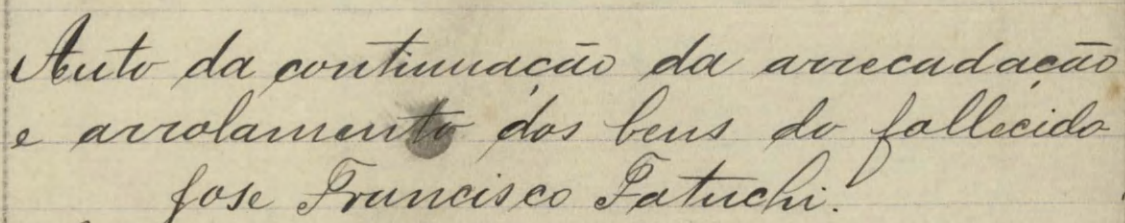 Auto da continuação da arrecadação
e arrolamento dos bens do fallecido
Jose Francisco Patuchi.